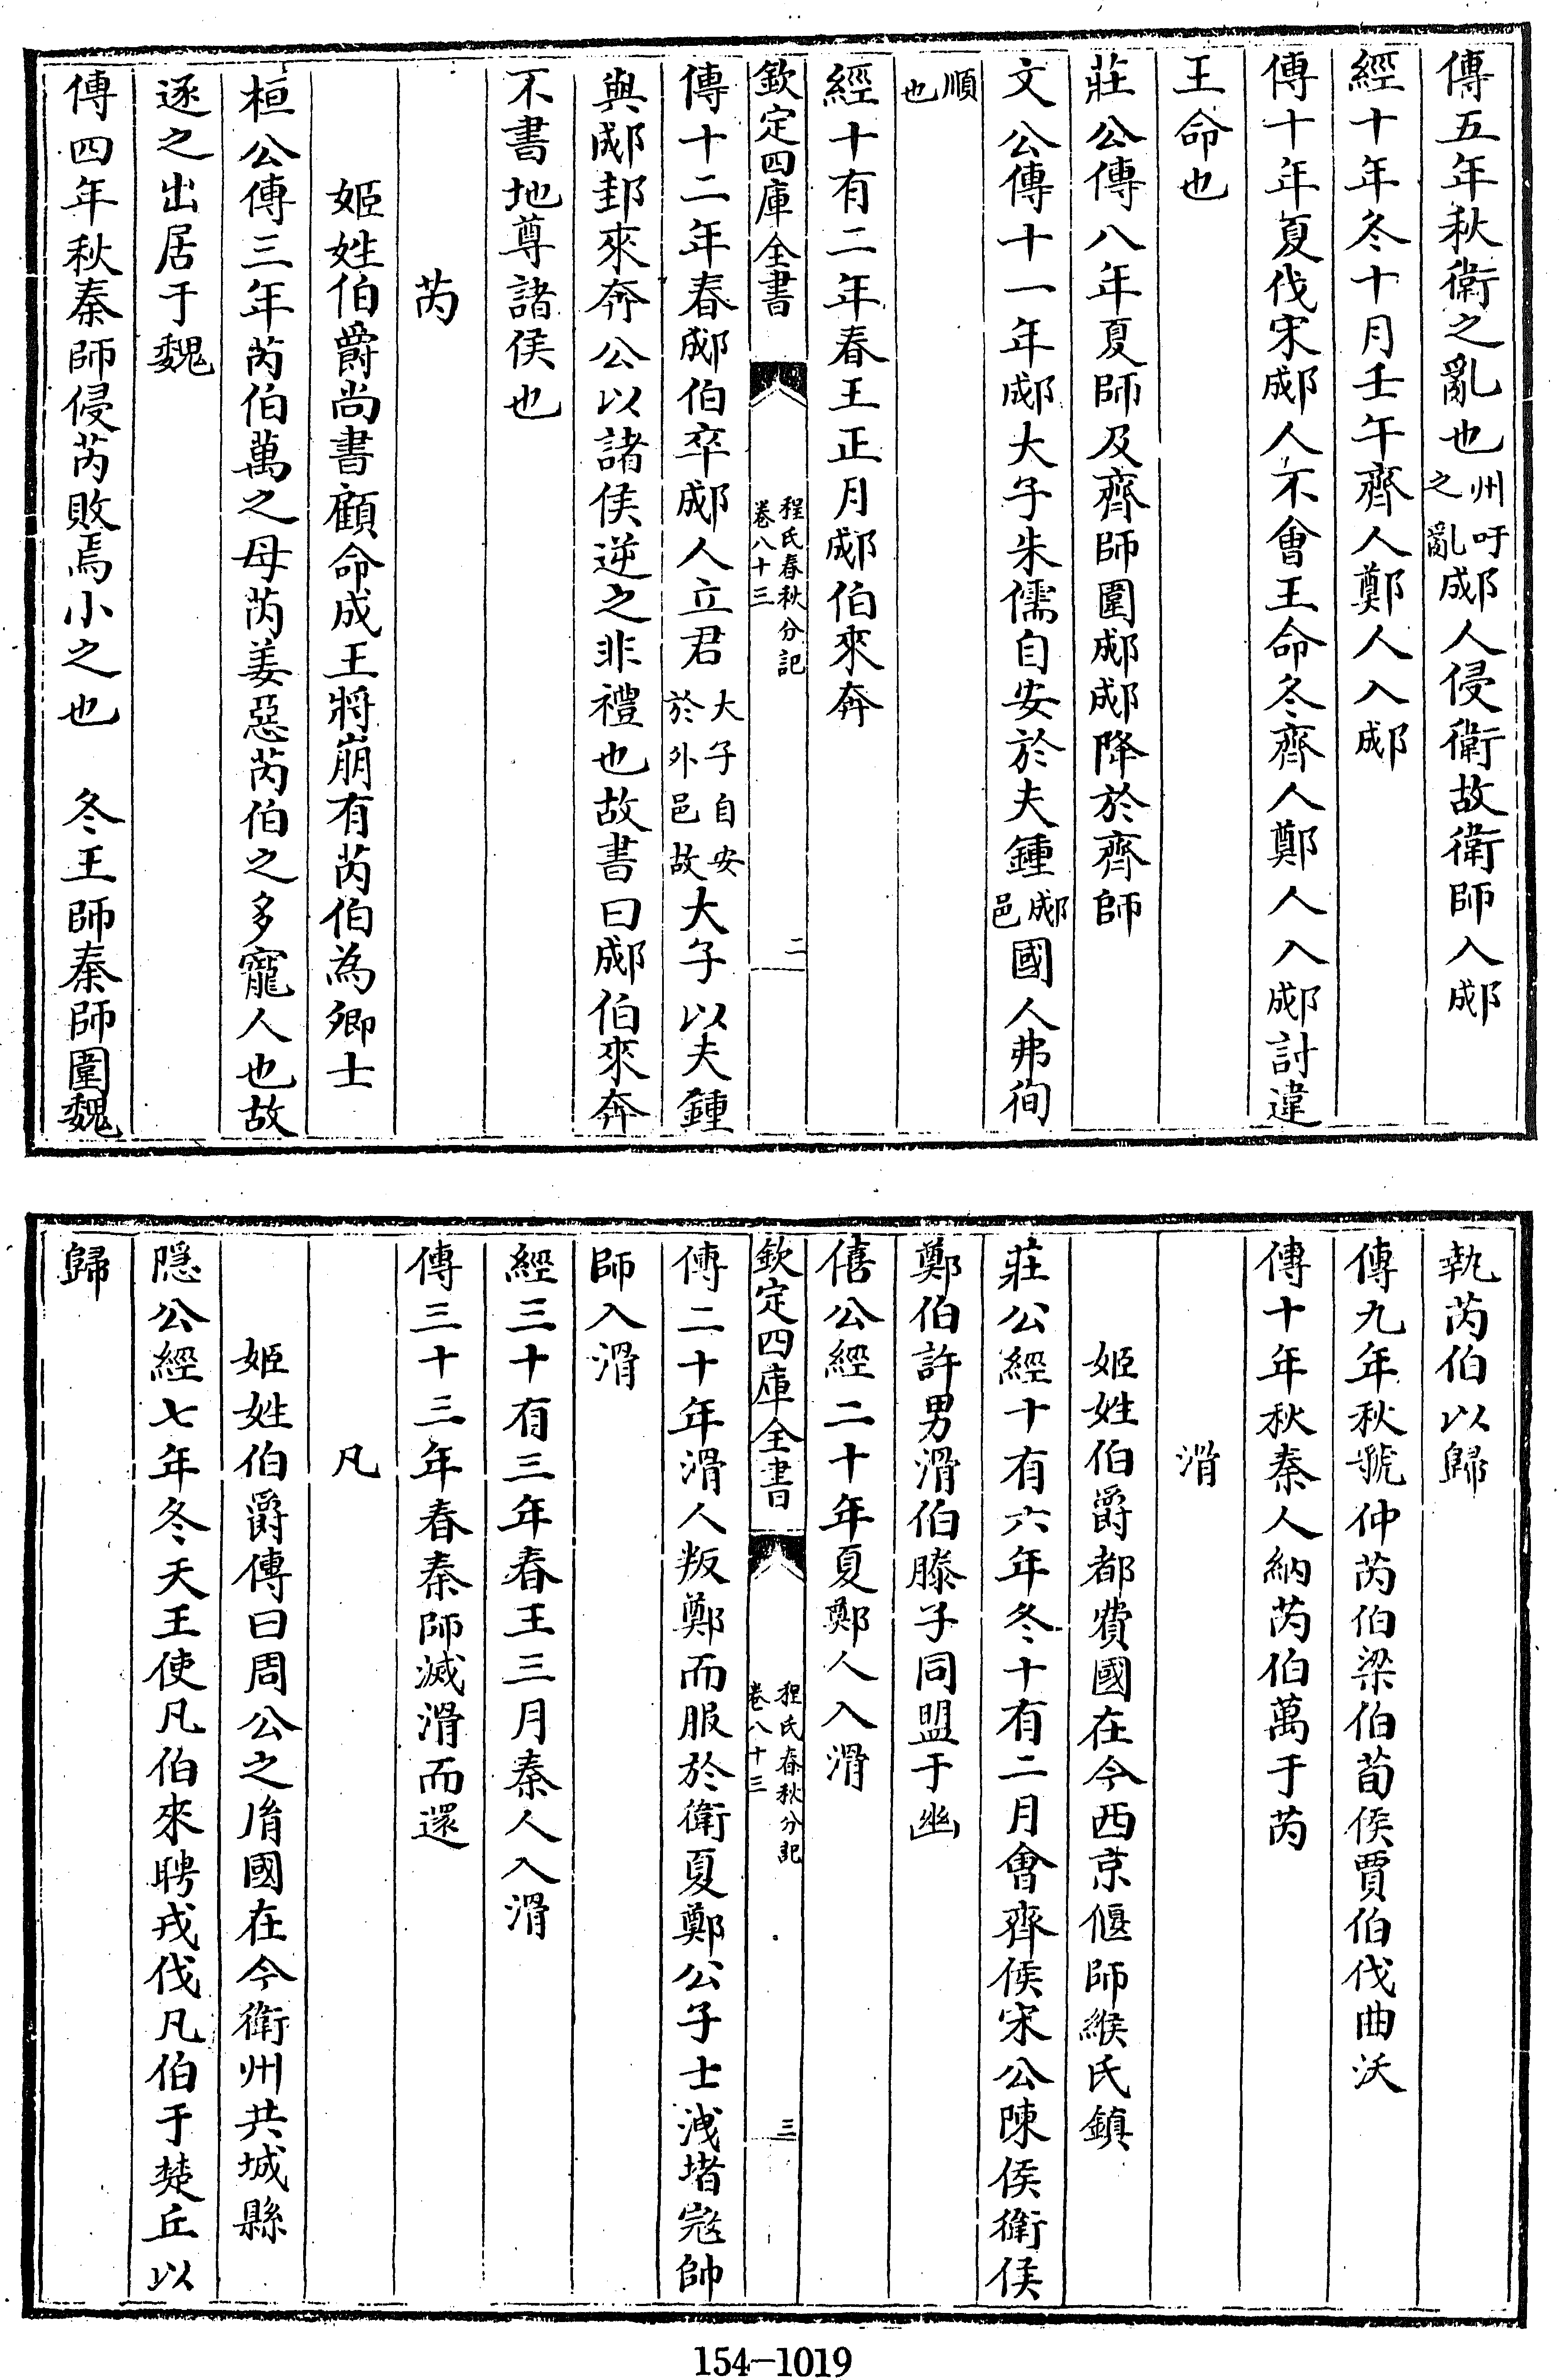 傳五年秋衛之亂也州吁之亂郕人侵衛故衛師入郕
經十年冬十月壬午齊人鄭人入郕
傳十年夏伐宋郕人不會王命冬齊人鄭人入郕討違
王命也
莊公傳八年夏師及齊師圍郕郕降於齊師
文公傳十一年郕大子朱儒自安於夫鍾郕邑國人弗徇
順也
經十有二年春王正月郕伯來奔
欽定四庫全書 程氏春秋分記卷八十三 二
傳十二年春郕伯卒郕人立君大子自安於外邑故大子以夫鍾
與郕邽來奔公以諸侯逆之非禮也故書曰郕伯來奔
不書地尊諸侯也
芮
姬姓伯爵尚書顧命成王將崩有芮伯為卿士
桓公傳三年芮伯萬之母芮姜惡芮伯之多寵人也故
逐之出居于魏
傳四年秋秦師侵芮敗焉小之也 冬王師秦師圍魏
執芮伯以歸
傳九年秋虢仲芮伯梁伯荀侯賈伯伐曲沃
傳十年秋秦人納芮伯萬于芮
滑
姬姓伯爵都費國在今西京偃師緱氏鎮
莊公經十有六年冬十有二月會齊侯宋公陳侯衛侯
鄭伯許男滑伯滕子同盟于幽
僖公經二十年夏鄭人入滑
欽定四庫全書 程氏春秋分記卷八十三 三
傳二十年滑人叛鄭而服於衛夏鄭公子士洩堵寇帥
師入滑
經三十有三年春王三月秦人入滑
傳三十三年春秦師滅滑而還
凡
姬姓伯爵傳曰周公之胤國在今衛州共城縣
隱公經七年冬天王使凡伯來聘戎伐凡伯于楚丘以
歸
154-1019